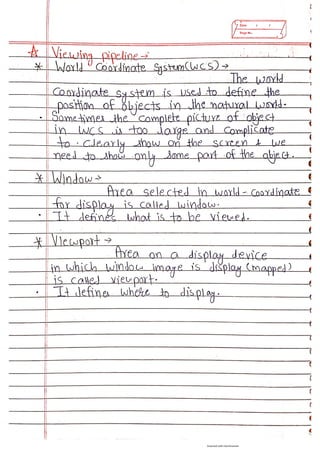 Viewing pipeline →
* World Coordinate System (WCS) →
The world
Coordinate system is used to define the
position of objects in the natural world.
• Sometimes the complete picture of object
in WCS is too large and complicate
to clearly show on the screen & we
need to show only some part of the object.
* Window →
Area selected in world-coordinate
for display is called window.
• It defines what is to be viewed.
* Viewport →
Area on a display device
in which window image is display (mapped)
is called viewport.
• It defines where to display.